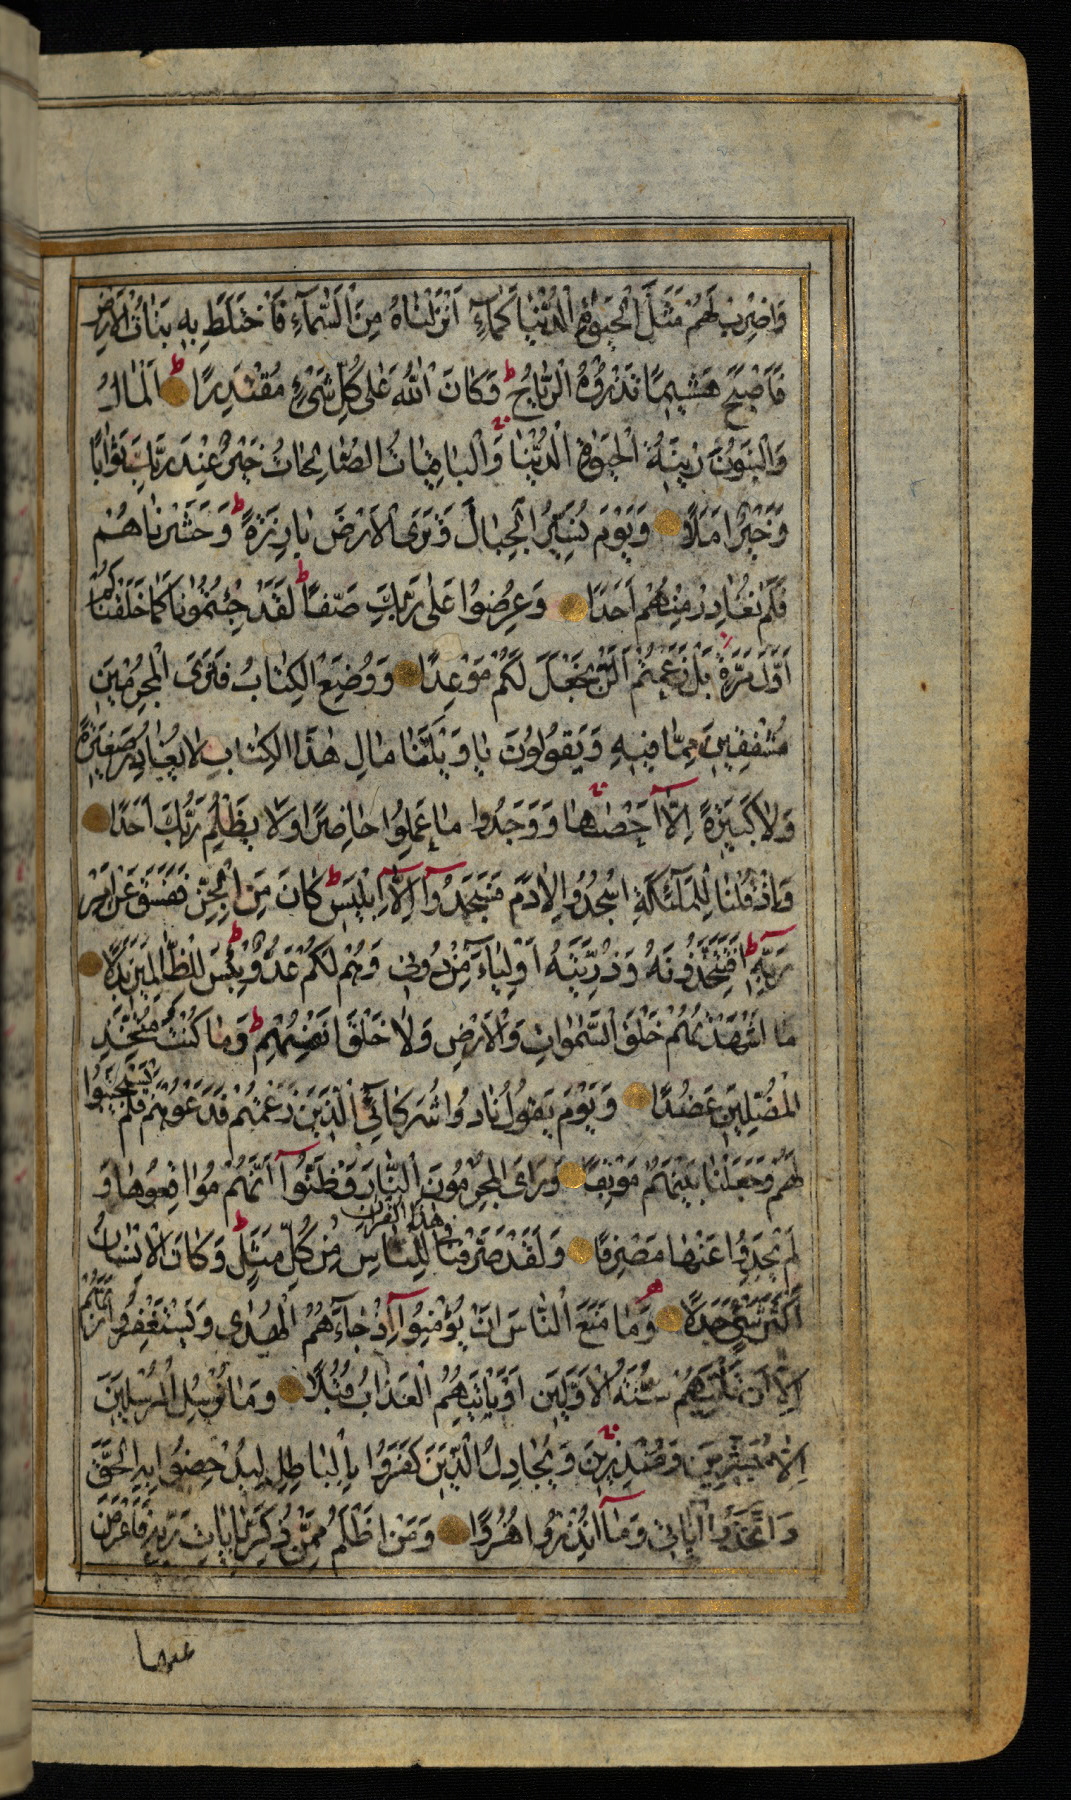 وَاضْرِبْ لَهُمْ مَثَلَ الْحَيٰوةِ الدُّنْيَا كَمَآءٍ اَنْزَلْنَاهُ مِنَ السَّمَآءِ فَاخْتَلَطَ بِهِ نَبَاتُ الْاَرْضِ
فَاَصْبَحَ هَشِيمًا تَذْرُوهُ الرِّيَاحُ ط وَكَانَ اللّٰهُ عَلٰى كُلِّ شَيْءٍ مُقْتَدِرًا ط اَلْمَالُ
وَالْبَنُونَ زِينَةُ الْحَيٰوةِ الدُّنْيَا وَالْبَاقِيَاتُ الصَّالِحَاتُ خَيْرٌ عِنْدَ رَبِّكَ ثَوَابًا
وَخَيْرٌ اَمَلًا وَيَوْمَ نُسَيِّرُ الْجِبَالَ وَتَرَى الْاَرْضَ بَارِزَةً ط وَحَشَرْنَاهُمْ
فَلَمْ نُغَادِرْ مِنْهُمْ اَحَدًا وَعُرِضُوا عَلٰى رَبِّكَ صَفًّا ط لَقَدْ جِئْتُمُونَا كَمَا خَلَقْنَاكُمْ
اَوَّلَ مَرَّةٍ بَلْ زَعَمْتُمْ اَلَّنْ نَجْعَلَ لَكُمْ مَوْعِدًا وَوُضِعَ الْكِتَابُ فَتَرَى الْمُجْرِمِينَ
مُشْفِقِينَ مِمَّا فِيهِ وَيَقُولُونَ يَا وَيْلَتَنَا مَالِ هٰذَا الْكِتَابِ لَا يُغَادِرُ صَغِيرَةً
وَلَا كَبِيرَةً اِلَّا اَحْصٰىهَا وَوَجَدُوا مَا عَمِلُوا حَاضِرًا وَلَا يَظْلِمُ رَبُّكَ اَحَدًا
وَاِذْ قُلْنَا لِلْمَلٰٓئِكَةِ اسْجُدُوا لِاٰدَمَ فَسَجَدُوآ اِلَّآ اِبْلِيسَ ط كَانَ مِنَ الْجِنِّ فَفَسَقَ عَنْ اَمْرِ
رَبِّهِ ط اَفَتَتَّخِذُونَهُ وَذُرِّيَّتَهُ اَوْلِيَآءَ مِنْ دُونِي وَهُمْ لَكُمْ عَدُوٌّ ط بِئْسَ لِلظَّالِمِينَ بَدَلًا
مَا اَشْهَدْتُهُمْ خَلْقَ السَّمٰوَاتِ وَالْاَرْضِ وَلَا خَلْقَ اَنْفُسِهِمْ ط وَمَا كُنْتُ مُتَّخِذَ
الْمُضِلِّينَ عَضُدًا وَيَوْمَ يَقُولُ نَادُوا شُرَكَائِيَ الَّذِينَ زَعَمْتُمْ فَدَعَوْهُمْ فَلَمْ يَسْتَجِيبُوا
لَهُمْ وَجَعَلْنَا بَيْنَهُمْ مَوْبِقًا وَرَاَى الْمُجْرِمُونَ النَّارَ فَظَنُّوآ اَنَّهُمْ مُوَاقِعُوهَا وَ
لَمْ يَجِدُوا عَنْهَا مَصْرِفًا وَلَقَدْ صَرَّفْنَا فِي هٰذَا الْقُرْاٰنِ لِلنَّاسِ مِنْ كُلِّ مَثَلٍ ط وَكَانَ الْاِنْسَانُ
اَكْثَرَ شَيْءٍ جَدَلًا وَمَا مَنَعَ النَّاسَ اَنْ يُؤْمِنُوآ اِذْ جَآءَهُمُ الْهُدٰى وَيَسْتَغْفِرُوا رَبَّهُمْ
اِلَّا اَنْ تَاْتِيَهُمْ سُنَّةُ الْاَوَّلِينَ اَوْ يَاْتِيَهُمُ الْعَذَابُ قُبُلًا وَمَا نُرْسِلُ الْمُرْسَلِينَ
اِلَّا مُبَشِّرِينَ وَمُنْذِرِينَ وَيُجَادِلُ الَّذِينَ كَفَرُوا بِالْبَاطِلِ لِيُدْحِضُوا بِهِ الْحَقَّ
وَاتَّخَذُوا اٰيَاتِي وَمَآ اُنْذِرُوا هُزُوًا وَمَنْ اَظْلَمُ مِمَّنْ ذُكِّرَ بِاٰيَاتِ رَبِّهِ فَاَعْرَضَ
عنها